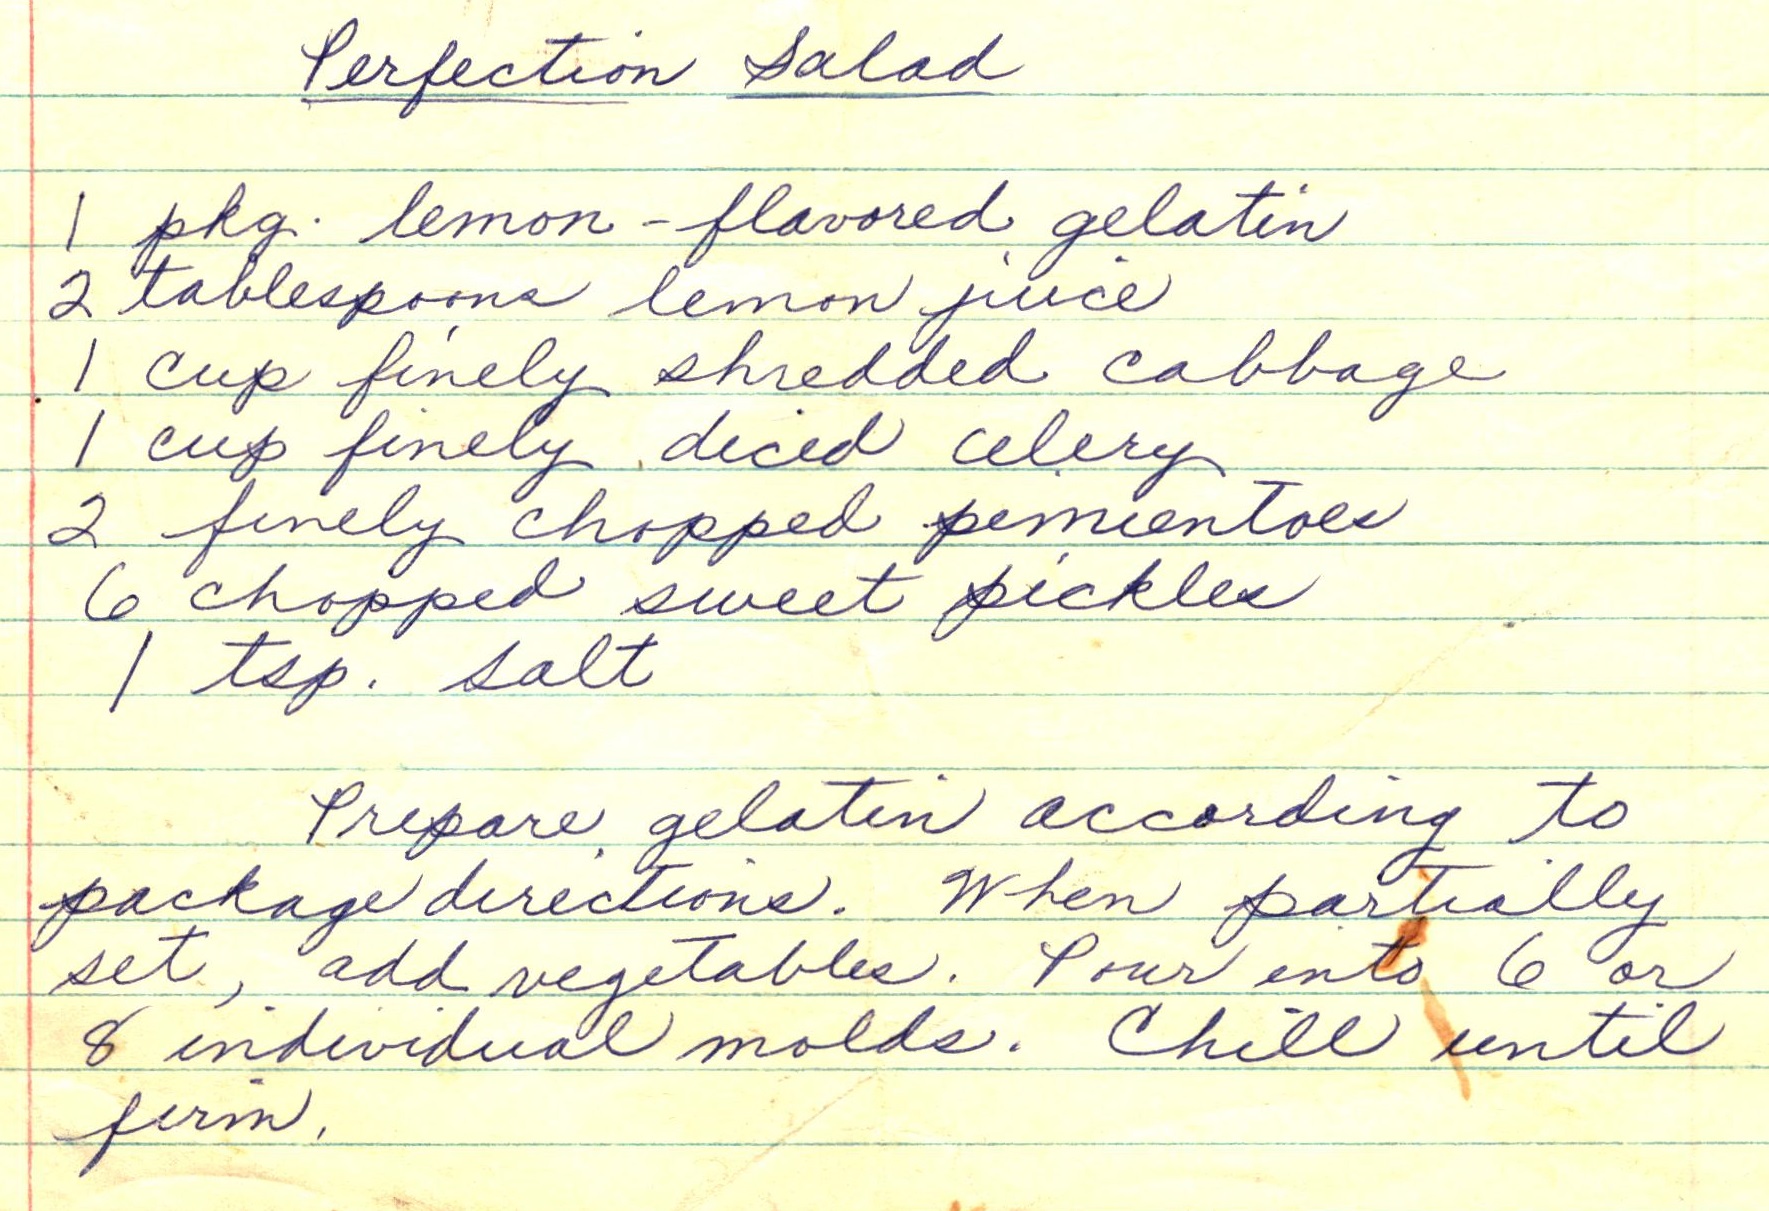 Perfection Salad
1 pkg. lemon-flavored gelatin
2 tablespoons lemon juice
1 cup finely shredded cabbage
1 cup finely diced celery
2 finely chopped pimientoes
6 chopped sweet pickles
1 tsp. salt
Prepare gelatin according to
package directions. When partially
set, add vegetables. Pour into 6 or
8 individual molds. Chill until
firm.